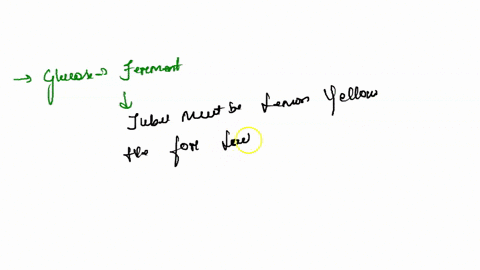 → Glucose → Ferment
↓
Tube must be Lemon Yellow
the for